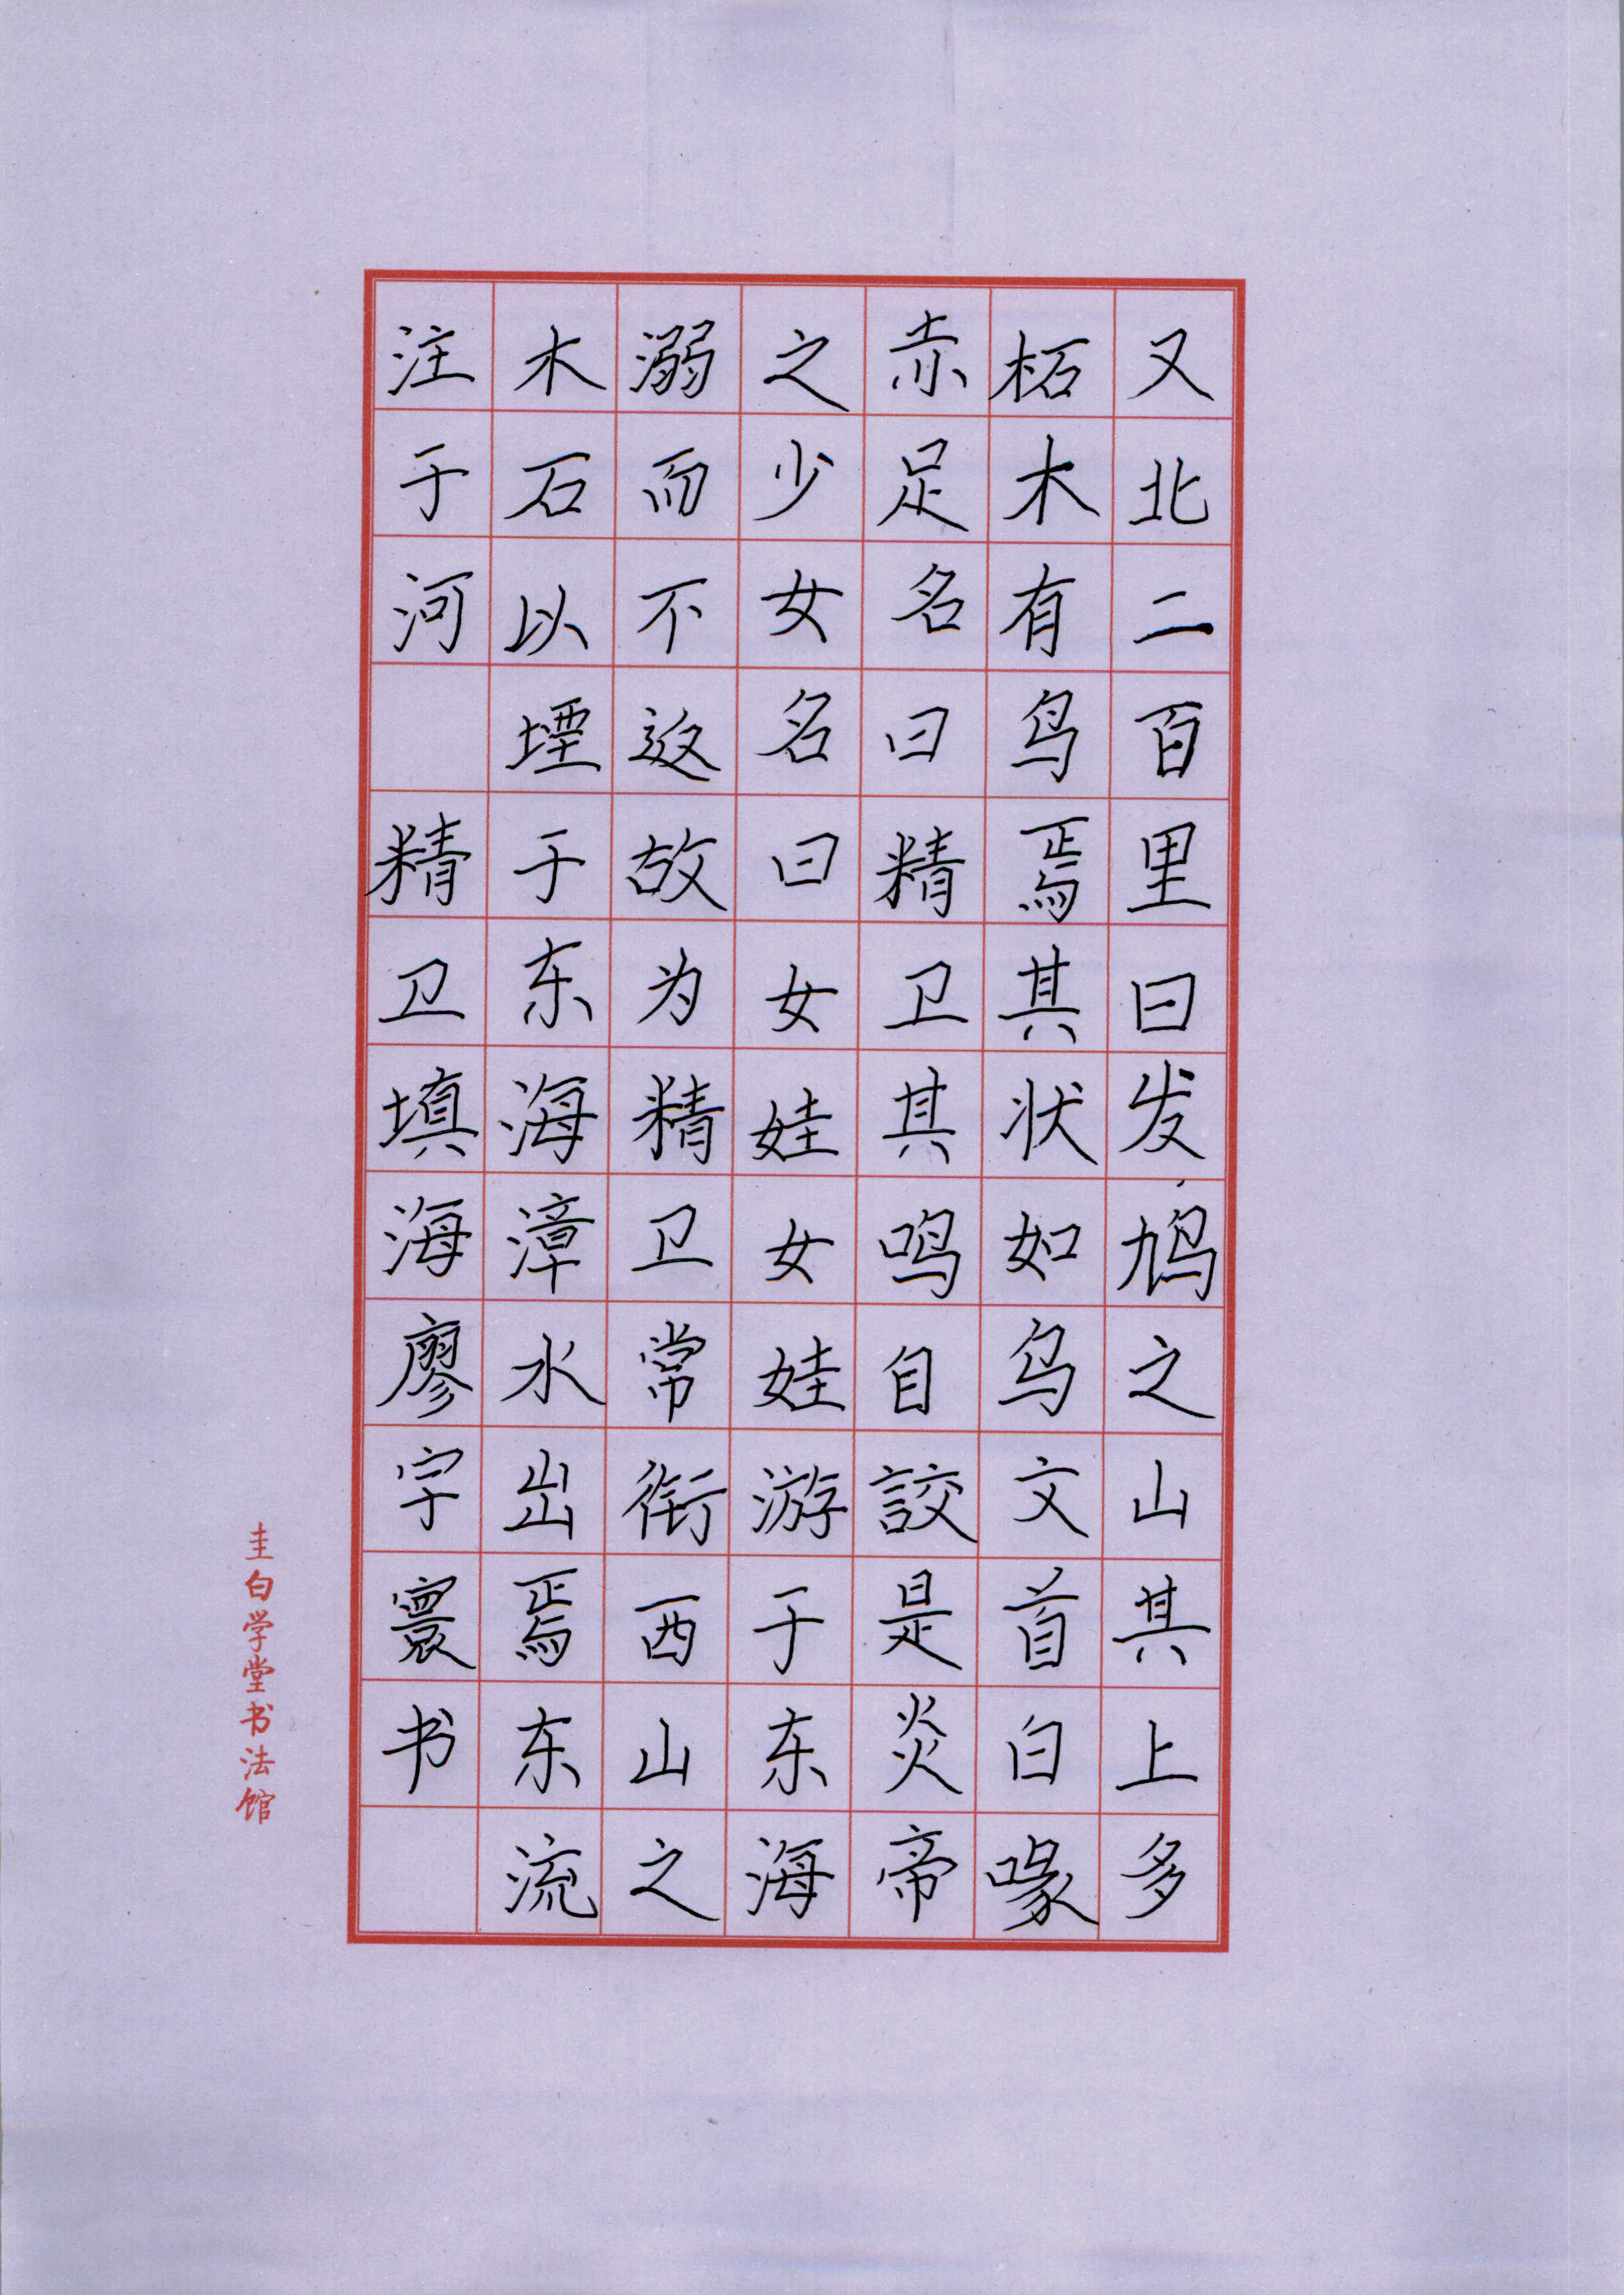 又北二百里曰发鸠之山其上多
柘木有鸟焉其状如乌文首白喙
赤足名曰精卫其鸣自詨是炎帝
之少女名曰女娃女娃游于东海
溺而不返故为精卫常衔西山之
木石以堙于东海漳水出焉东流
注于河 精卫填海廖宇寰书
圭白学堂书法馆